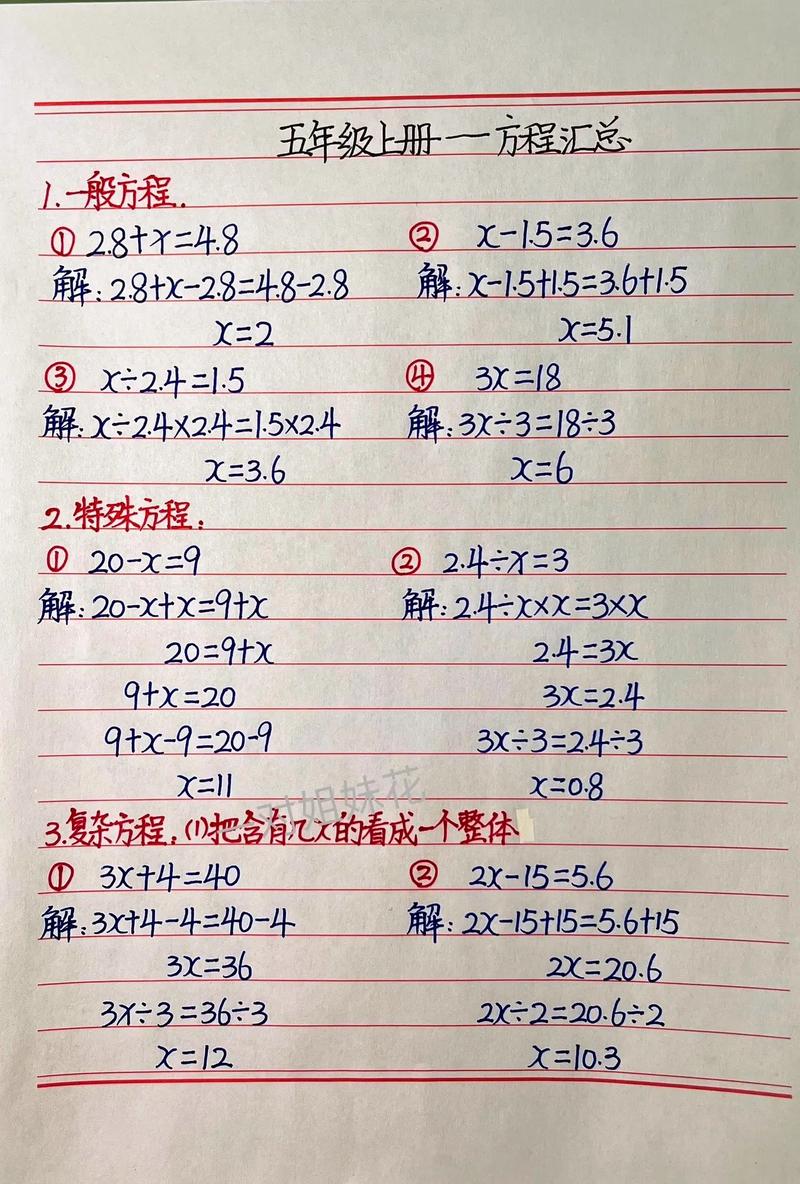 五年级上册——方程汇总
1.一般方程.
① 2.8+x=4.8 ② x-1.5=3.6
解:2.8+x-2.8=4.8-2.8 解:x-1.5+1.5=3.6+1.5
x=2 x=5.1
③ x÷2.4=1.5 ④ 3x=18
解:x÷2.4×2.4=1.5×2.4 解:3x÷3=18÷3
x=3.6 x=6
2.特殊方程:
① 20-x=9 ② 2.4÷x=3
解:20-x+x=9+x 解:2.4÷x×x=3×x
20=9+x 2.4=3x
9+x=20 3x=2.4
9+x-9=20-9 3x÷3=2.4÷3
x=11 x=0.8
一对姐妹花
3.复杂方程:(1)把含有几x的看成一个整体
① 3x+4=40 ② 2x-15=5.6
解:3x+4-4=40-4 解:2x-15+15=5.6+15
3x=36 2x=20.6
3x÷3=36÷3 2x÷2=20.6÷2
x=12 x=10.3